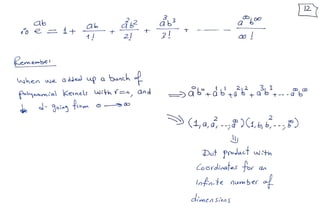 12
∴ e^{ab} = 1 + ab/1! + a²b²/2! + a³b³/3! + ------ a^∞b^∞/∞!
Remember
When we added up a bunch of
Polynomial Kernels with r=0, and
d- going from 0 → ∞
⇒ a⁰b⁰ + a¹b¹ + a²b² + a³b³ + --- a^∞b^∞
⇒ (1, a, a², --, a^∞) (1, b, b², --, b^∞)
⇓
Dot product with
Coordinates for an
Infinite number of
dimensions